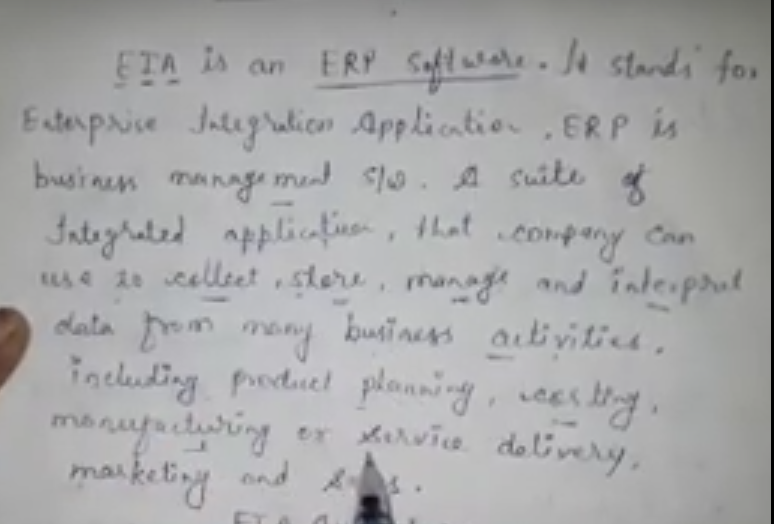 EIA is an ERP Software. It stands for
Enterprise Integration Application. ERP is
business management s/w. A suite of
Integrated application, that company can
use to collect, store, manage and interpret
data from many business activities.
including product planning, costing,
manufacturing or service delivery,
marketing and
EIA